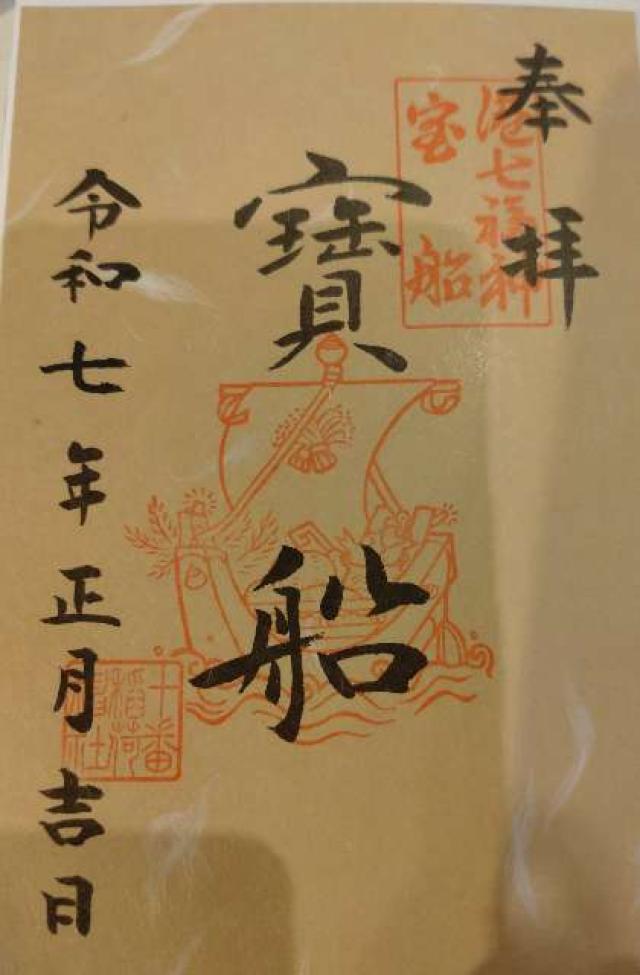 奉拝
港七福神
宝船
寳船
令和七年正月吉日
十番
稲荷
神社